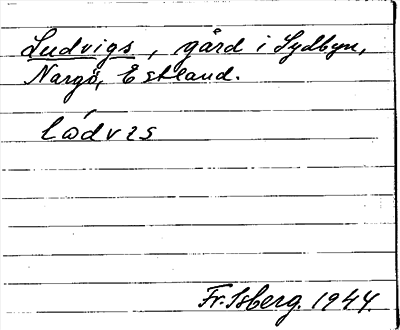 Ludvigs, gård i Sydbyn,
Nargö, Estland.
lódvɩs
Fr. Isberg. 1944.